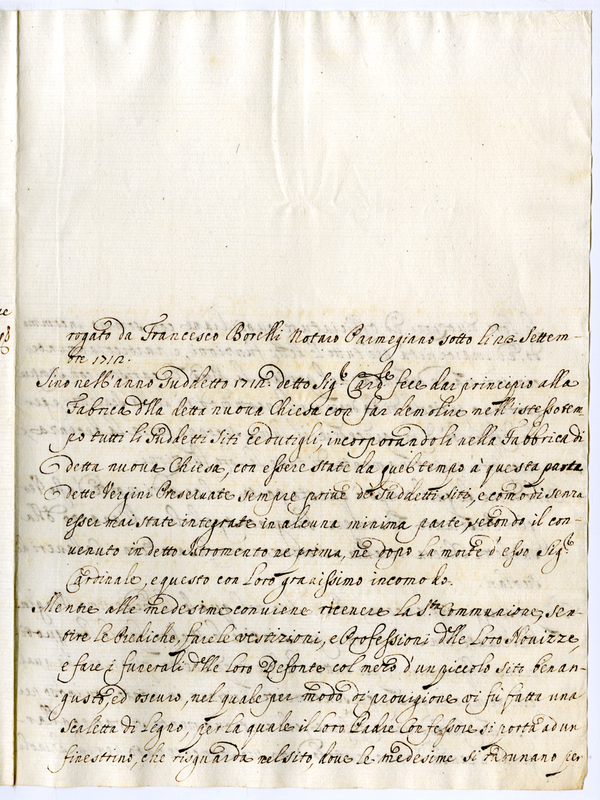 rogato da Francesco Borelli Notaro Parmegiano sotto li 28 Settem-
bre 1712.
Sino nell'anno suddetto 1712. detto Sig.r Card.e fece dar principio alla
Fabrica della detta nuova Chiesa con far demolire nell'istesso tem
po tutti li suddetti siti cedutigli, incorporandoli nella Fabbrica di
detta nuova Chiesa, con essere state da quel tempo à questa parte
dette Vergini Conservate sempre prive de suddetti siti, e comodi senza
esser mai state integrate in alcuna minima parte, secondo il con-
venuto in detto Istromento ne prima, ne dopo la morte d'esso Sig.r
Cardinale, e questo con loro gravissimo incomodo.
Mentre alle medesime conviene ricevere la S.ta Communione, sen-
tire le Prediche, fare le vestizioni, e Professioni delle loro Novizze,
e fare i funerali delle loro Defonte col mezo d'un piccolo sito ben an-
gusto, ed oscuro, nel quale per modo di provigione vi fù fatta una
scaletta di legno, per la quale il loro Padre Confessore si porta ad un
finestrino, che risguarda nel sito, dove le medesime si radunano per